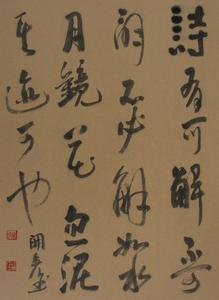 詩有可解不可
解不必解如水
月鏡花勿泥
其迹可也